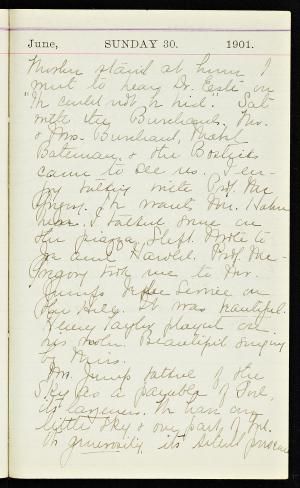 June, SUNDAY 30. 1901.
Mother staid at home I
went to hear Dr. Estè on
"He could not be hid." Sat
with the Burnhams. Mr.
& Mrs. Burnham, Mabel
Bateman, & the Bostwicks
came to see us. I en-
joy talking with Prof. Mc
Gregory. He wants Mr.
I talked some on
the piazza. Slept. Wrote to
and Harold. Prof. Mc-
Gregory took me to Mr.
Jump's Service on
the Hill. It was beautiful.
Henry Taylor played on
his violin. Beautiful singing
by Miss.
Mr. Jump talked of the
Sky as a parable of God,
its largeness. We have any
little sky & one part of God.
Its generosity, its silent